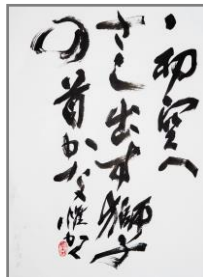 初空へ
さし出す獅子
の首かな